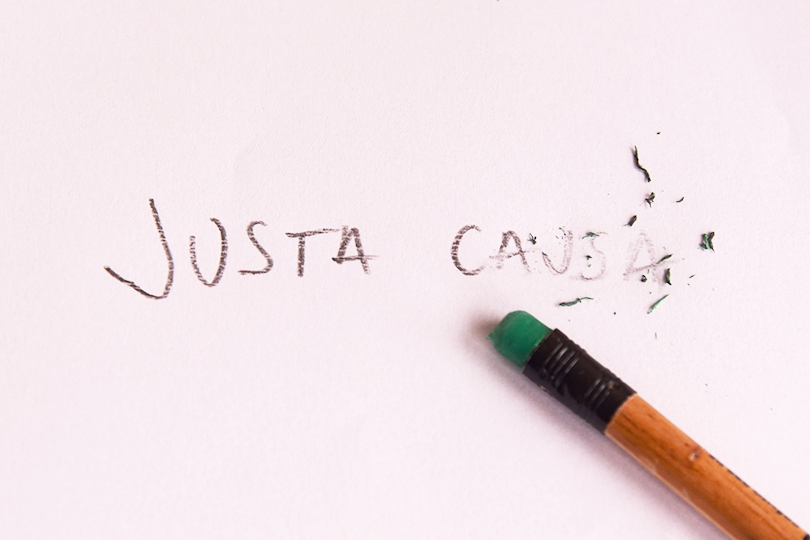 JUSTA CAUSA